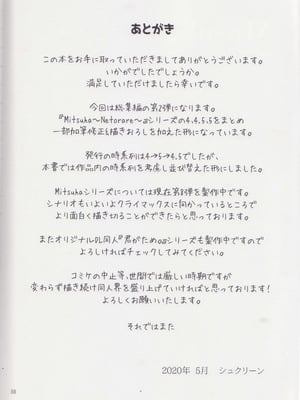 あとがき
この本をお手に取っていただきましてありがとうございます。
いかがでしたでしょうか。
満足していただけましたら幸いです。
今回は総集編の第2弾になります。
『Mitsuha～Netorare～』シリーズの4、4.5、5をまとめ
一部加筆修正&描きおろしを加えた形になっています。
発行の時系列は4→5→4.5でしたが、
本書では作品内の時系列を考慮し並び替えた形にしました。
Mitsuhaシリーズについては現在第8弾を製作中です。
シナリオもいよいよクライマックスに向かっているところで
より面白く描き切ることができたらと思っております。
またオリジナルDL同人『君がため』シリーズも製作中ですので
よろしければチェックしてみてください。
コミケの中止等、世間では厳しい時期ですが
変わらず描き続け同人界を盛り上げていければと思っております!
よろしくお願いいたします。
それではまた
2020年 5月 シュクリーン